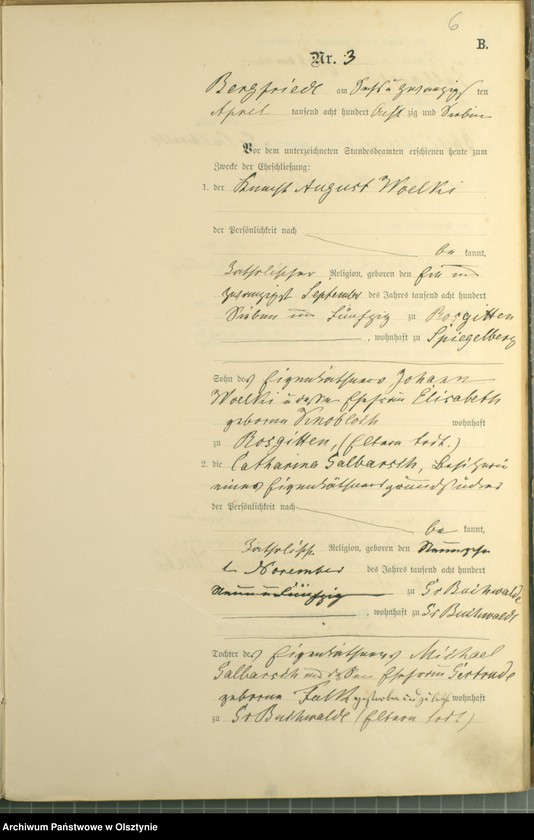 6
B.
Nr. 3
Bergfriede am Sechs u zwanzigsten
April tausend acht hundert Achtzig und Sieben
Vor dem unterzeichneten Standesbeamten erschienen heute zum
Zwecke der Eheschließung:
1. der Knecht August Woelki
der Persönlichkeit nach
be kannt,
katholischer Religion, geboren den Ein und
zwanzigst September des Jahres tausend acht hundert
Sieben und Fünfzig zu Rosgitten
, wohnhaft zu Spiegelberg
Sohn des Eigenkäthners Johann
Woelki u dessen Ehefrau Elisabeth
geborne Knobloch wohnhaft
zu Rosgitten, (Eltern todt.)
2. die Catharina Galbarsch, Besitzerin
eines Eigenkäthnergrundstückes
der Persönlichkeit nach
be kannt,
katholisch Religion, geboren den
November des Jahres tausend acht hundert
Neun u Fünfzig zu Gr Buchwalde
, wohnhaft zu Gr Buchwalde
Tochter des Eigenkäthners Michael
Galbarsch und dessen Ehefrau Gertrude
geborne Falk wohnhaft
zu Gr Buchwalde (Eltern todt)
Archiwum Państwowe w Olsztynie